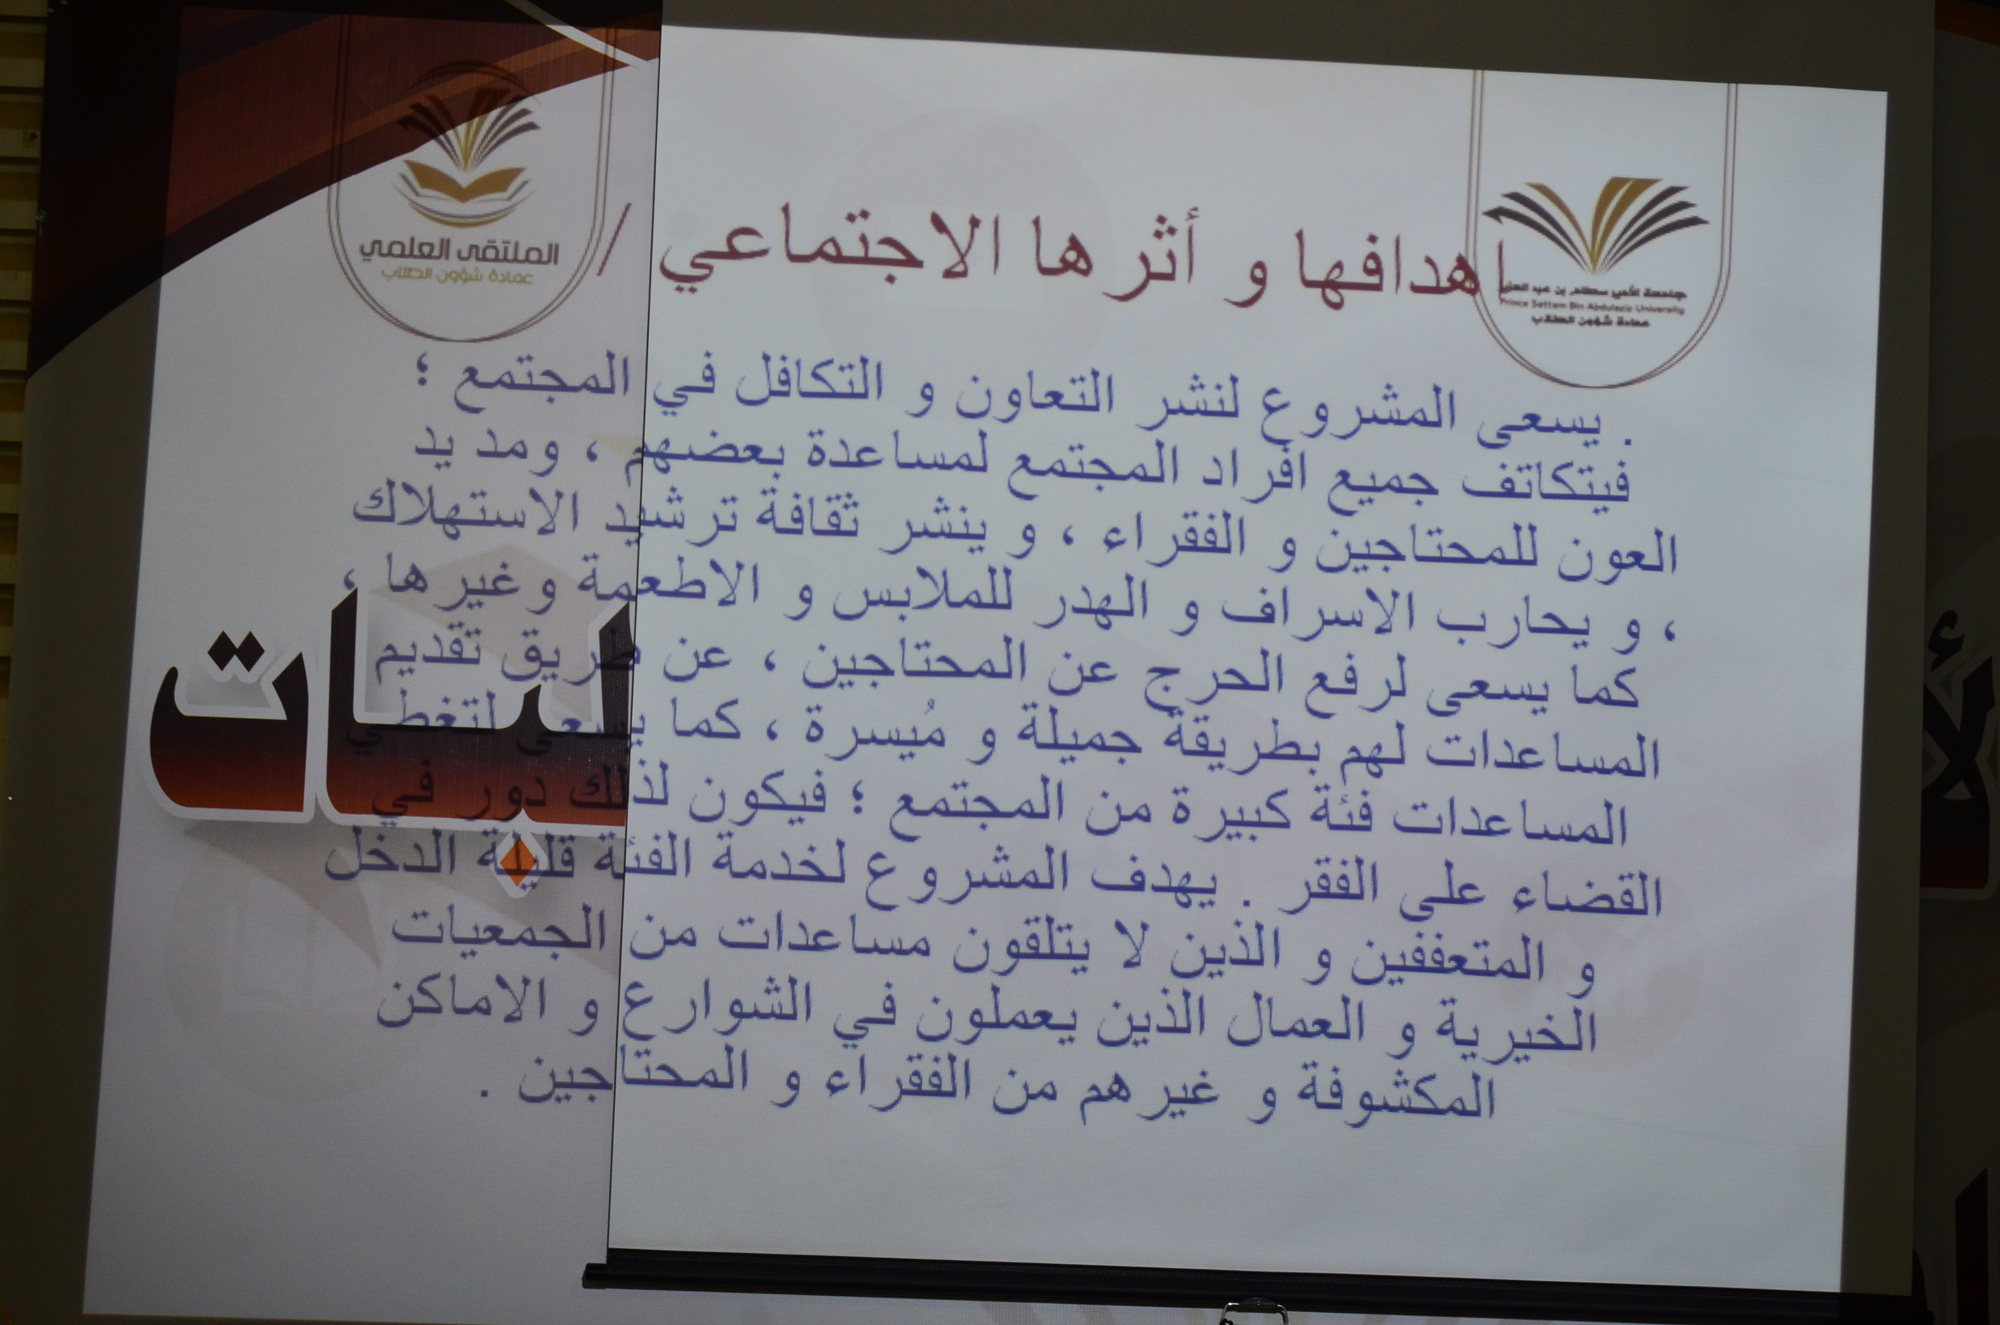 الملتقى العلمي
عمادة شؤون الطلاب
جامعة الأمير سطام بن عبد العزيز
Prince Sattam Bin Abdulaziz University
عمادة شؤون الطلاب
اهدافها و أثرها الاجتماعي /
. يسعى المشروع لنشر التعاون و التكافل في المجتمع ؛
فيتكاتف جميع افراد المجتمع لمساعدة بعضهم ، ومد يد
العون للمحتاجين و الفقراء ، و ينشر ثقافة ترشيد الاستهلاك
، و يحارب الاسراف و الهدر للملابس و الاطعمة وغيرها ،
كما يسعى لرفع الحرج عن المحتاجين ، عن طريق تقديم
المساعدات لهم بطريقة جميلة و مُيسرة ، كما يسعى لتغطي
المساعدات فئة كبيرة من المجتمع ؛ فيكون لذلك دور في
القضاء على الفقر . يهدف المشروع لخدمة الفئة قليلة الدخل
و المتعففين و الذين لا يتلقون مساعدات من الجمعيات
الخيرية و العمال الذين يعملون في الشوارع و الاماكن
المكشوفة و غيرهم من الفقراء و المحتاجين .